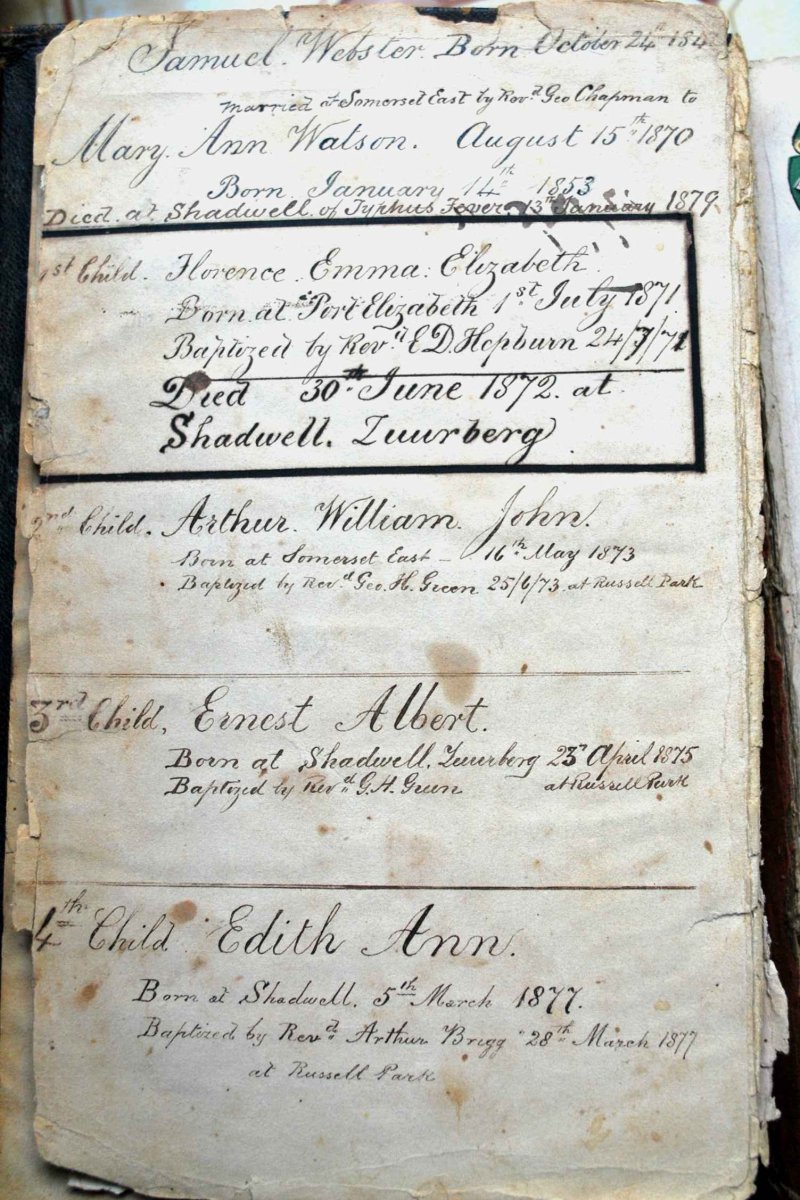 Samuel. Webster. Born October 24th
married at Somerset East by Revd Geo Chapman to
Mary. Ann Watson. August 15th 1870
Born January 14th 1853
Died at Shadwell of Typhus Fever. 13th January 1879
1st Child. Florence Emma: Elizabeth
Born at Port Elizabeth 1st July 1871.
Baptized by Revd E D. Hepburn 24/7/71
Died 30th June 1872. at
Shadwell. Zuurberg
2nd Child. Arthur. William. John.
Born at Somerset East – 16th May 1873
Baptized by Revd Geo. H. Green 25/6/73 at Russell Park
3rd Child, Ernest Albert.
Born at Shadwell. Zuurberg 23rd April 1875
Baptized by Revd G. H. Green at Russell Park
4th Child Edith Ann.
Born at Shadwell. 5th March 1877.
Baptized by Revd Arthur Brigg 28th March 1877
at Russell Park